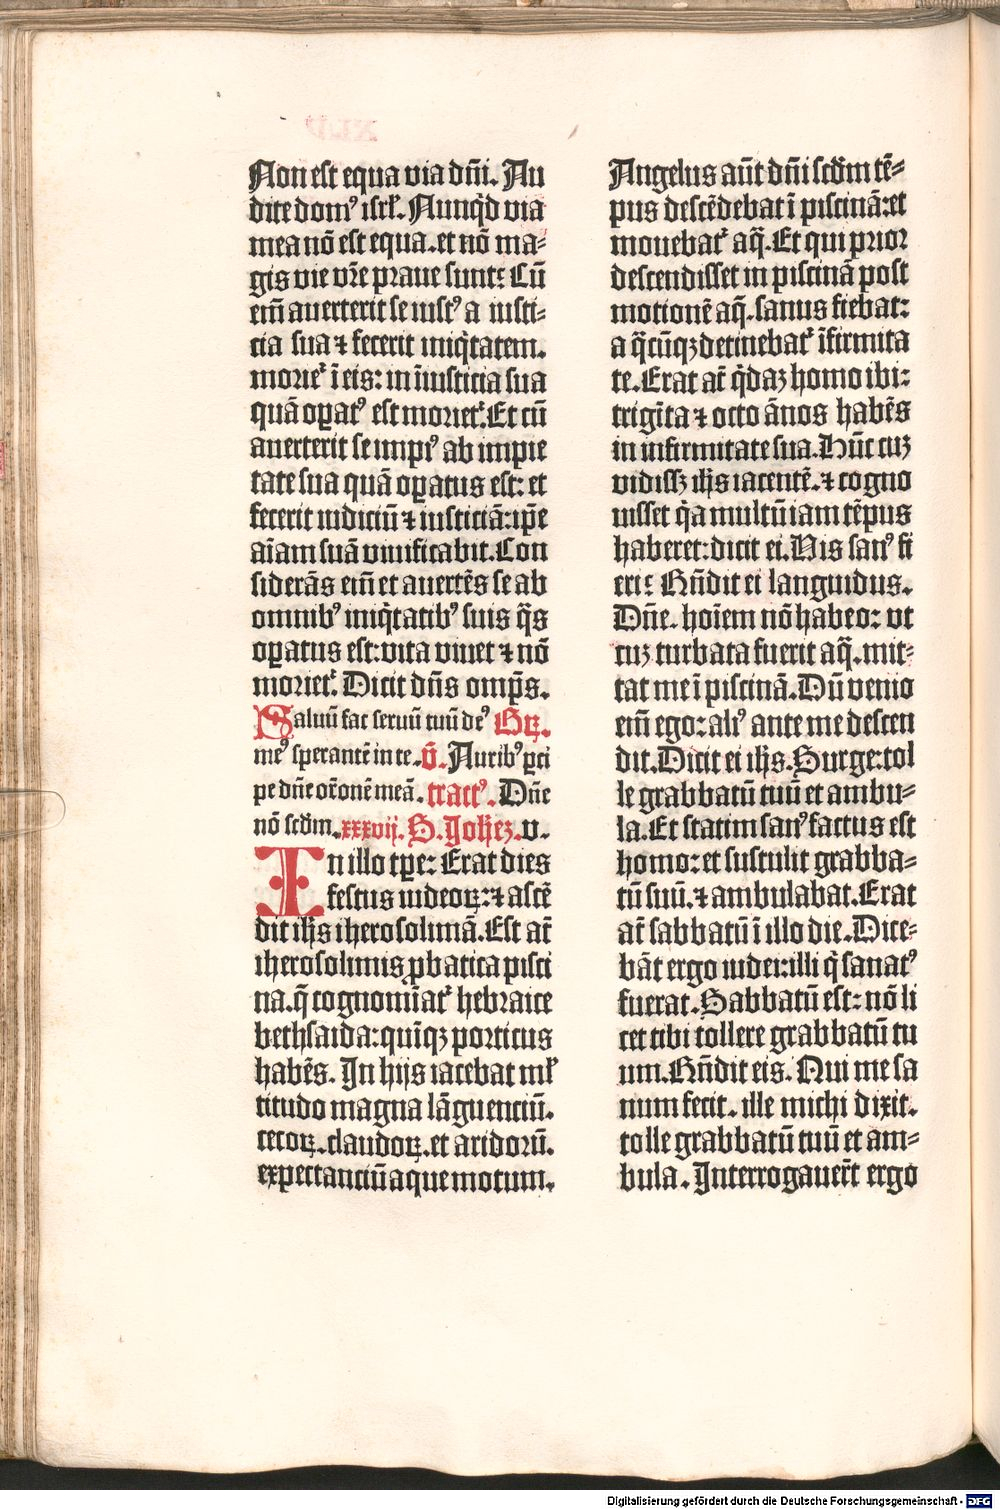 Non est equa via dñi. Au
dite dom⁹ isrł. Nunqͥd via
mea nõ est equa. et nõ ma⸗
gis vie vr̃e praue sunt: Cũ
em̃ auerterit se iust⁹ a iusti⸗
cia sua ⁊ fecerit iniqͥtatem.
moriet᷑ ĩ eis: in ĩiusticia sua
quã oꝑat⁹ est moriet᷑. Et cũ
auerterit se impi⁹ ab impie
tate sua quã oꝑatus est: et
fecerit iudiciũ ⁊ iusticiã: ip̃e
aĩam suã viuificabit. Con
siderãs eim̃ et auertẽs se ab
omnib⁹ iniqͥtatib⁹ suis q̃s
oꝑatus est: vita viuet ⁊ nõ
moriet᷑. Dicit dñs omp̃s.
Saluũ fac seruũ tuũ de⁹ Gꝝ.
me⁹ sperantẽ in te. v̄. Aurib⁹ ꝑci
pe dñe or̃onẽ meã. tract⁹. Dñe
nõ scd̃m. xxxvij. S. Joheʒ. v.
In illo tꝑe: Erat dies
festus iudeoꝝ: ⁊ ascẽ
dit ih̃s iherosolimã. Est aũt
iherosolimis ꝓbatica pisci
na. q̃ cognomĩat᷑ hebraice
bethsaida: quĩqꝫ porticus
habẽs. In hijs iacebat mł
titudo magna lãguenciũ.
cecoꝝ. claudoꝝ. et aridorũ.
expectanciũ aque motum.
Angelus aũt dñi scd̃m tẽ⸗
pus descẽdebat ĩ piscinã: et
mouebat᷑ aq̃. Et qui prior
descendisset in piscinã post
motionẽ aq̃. sanus fiebat:
a q̃cũqꝫ detinebat᷑ ĩfirmita
te. Erat aũt qͥdaʒ homo ibi:
trigĩta ⁊ octo ãnos habẽs
in infirmitate sua. Hũc cuʒ
vidissʒ ih̃s iacentẽ. ⁊ cogno
uisset q̃a multũ iam tẽpus
haberet: dicit ei. Vis san⁹ fi
eri: Rñdit ei languidus.
Dñe. hoĩem nõ habeo: vt
cuʒ turbata fuerit aq̃. mit⸗
tat me ĩ piscinã. Dũ venio
em̃ ego: ali⁹ ante me descen
dit. Dicit ei ih̃s. Surge: tol
le grabbatũ tuũ et ambu⸗
la. Et statim san⁹ factus est
homo: et sustulit grabba⸗
tũ suũ. ⁊ ambulabat. Erat
aũt sabbatũ ĩ illo die. Dice⸗
bãt ergo iudei: illi q̃ sanat⁹
fuerat. Sabbatũ est: nõ li
cet tibi tollere grabbatũ tu
um. Rñdit eis. Qui me sa
num fecit. ille michi dixit.
tolle grabbatũ tuũ et am⸗
bula. Interrogauer̃t ergo
Digitalisierung gefördert durch die Deutsche Forschungsgemeinschaft - DFG